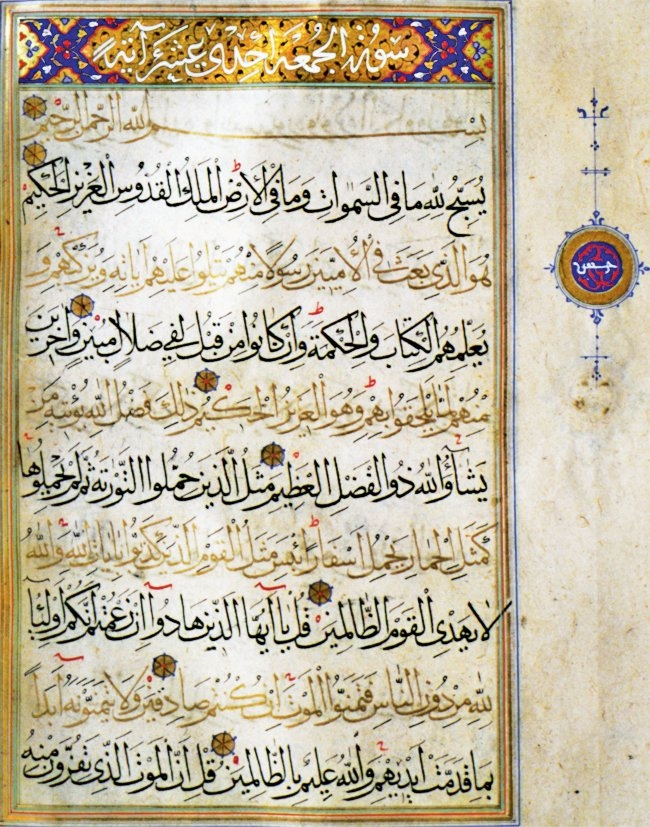 سورة الجمعة احدى عشر آية
بسم الله الرحمن الرحيم
يُسَبِّحُ لِلّهِ مَا فِي السَّمٰوَاتِ وَمَا فِي الْاَرْضِ الْمَلِكِ الْقُدُّوسِ الْعَزِيزِ الْحَكِيمِ
هُوَ الَّذِي بَعَثَ فِي الْاُمِّيِّينَ رَسُولًا مِنْهُمْ يَتْلُوا عَلَيْهِمْ اٰيَاتِهِ وَيُزَكِّيهِمْ وَ
يُعَلِّمُهُمُ الْكِتَابَ وَالْحِكْمَةَ وَاِنْ كَانُوا مِنْ قَبْلُ لَفِي ضَلَالٍ مُبِينٍ وَاٰخَرِينَ
مِنْهُمْ لَمَّا يَلْحَقُوا بِهِمْ وَهُوَ الْعَزِيزُ الْحَكِيمُ ذٰلِكَ فَضْلُ اللّٰهِ يُؤْتِيهِ مَنْ
يَشَاءُ وَاللّٰهُ ذُو الْفَضْلِ الْعَظِيمِ مَثَلُ الَّذِينَ حُمِّلُوا التَّوْرٰيةَ ثُمَّ لَمْ يَحْمِلُوهَا
كَمَثَلِ الْحِمَارِ يَحْمِلُ اَسْفَارًا بِئْسَ مَثَلُ الْقَوْمِ الَّذِينَ كَذَّبُوا بِاٰيَاتِ اللّٰهِ وَاللّٰهُ
لَا يَهْدِي الْقَوْمَ الظَّالِمِينَ قُلْ يَا اَيُّهَا الَّذِينَ هَادُوا اِنْ زَعَمْتُمْ اَنَّكُمْ اَوْلِيَاءُ
لِلّٰهِ مِنْ دُونِ النَّاسِ فَتَمَنَّوُا الْمَوْتَ اِنْ كُنْتُمْ صَادِقِينَ وَلَا يَتَمَنَّوْنَهُ اَبَدًا
بِمَا قَدَّمَتْ اَيْدِيهِمْ وَاللّٰهُ عَلِيمٌ بِالظَّالِمِينَ قُلْ اِنَّ الْمَوْتَ الَّذِي تَفِرُّونَ مِنْهُ
خمس